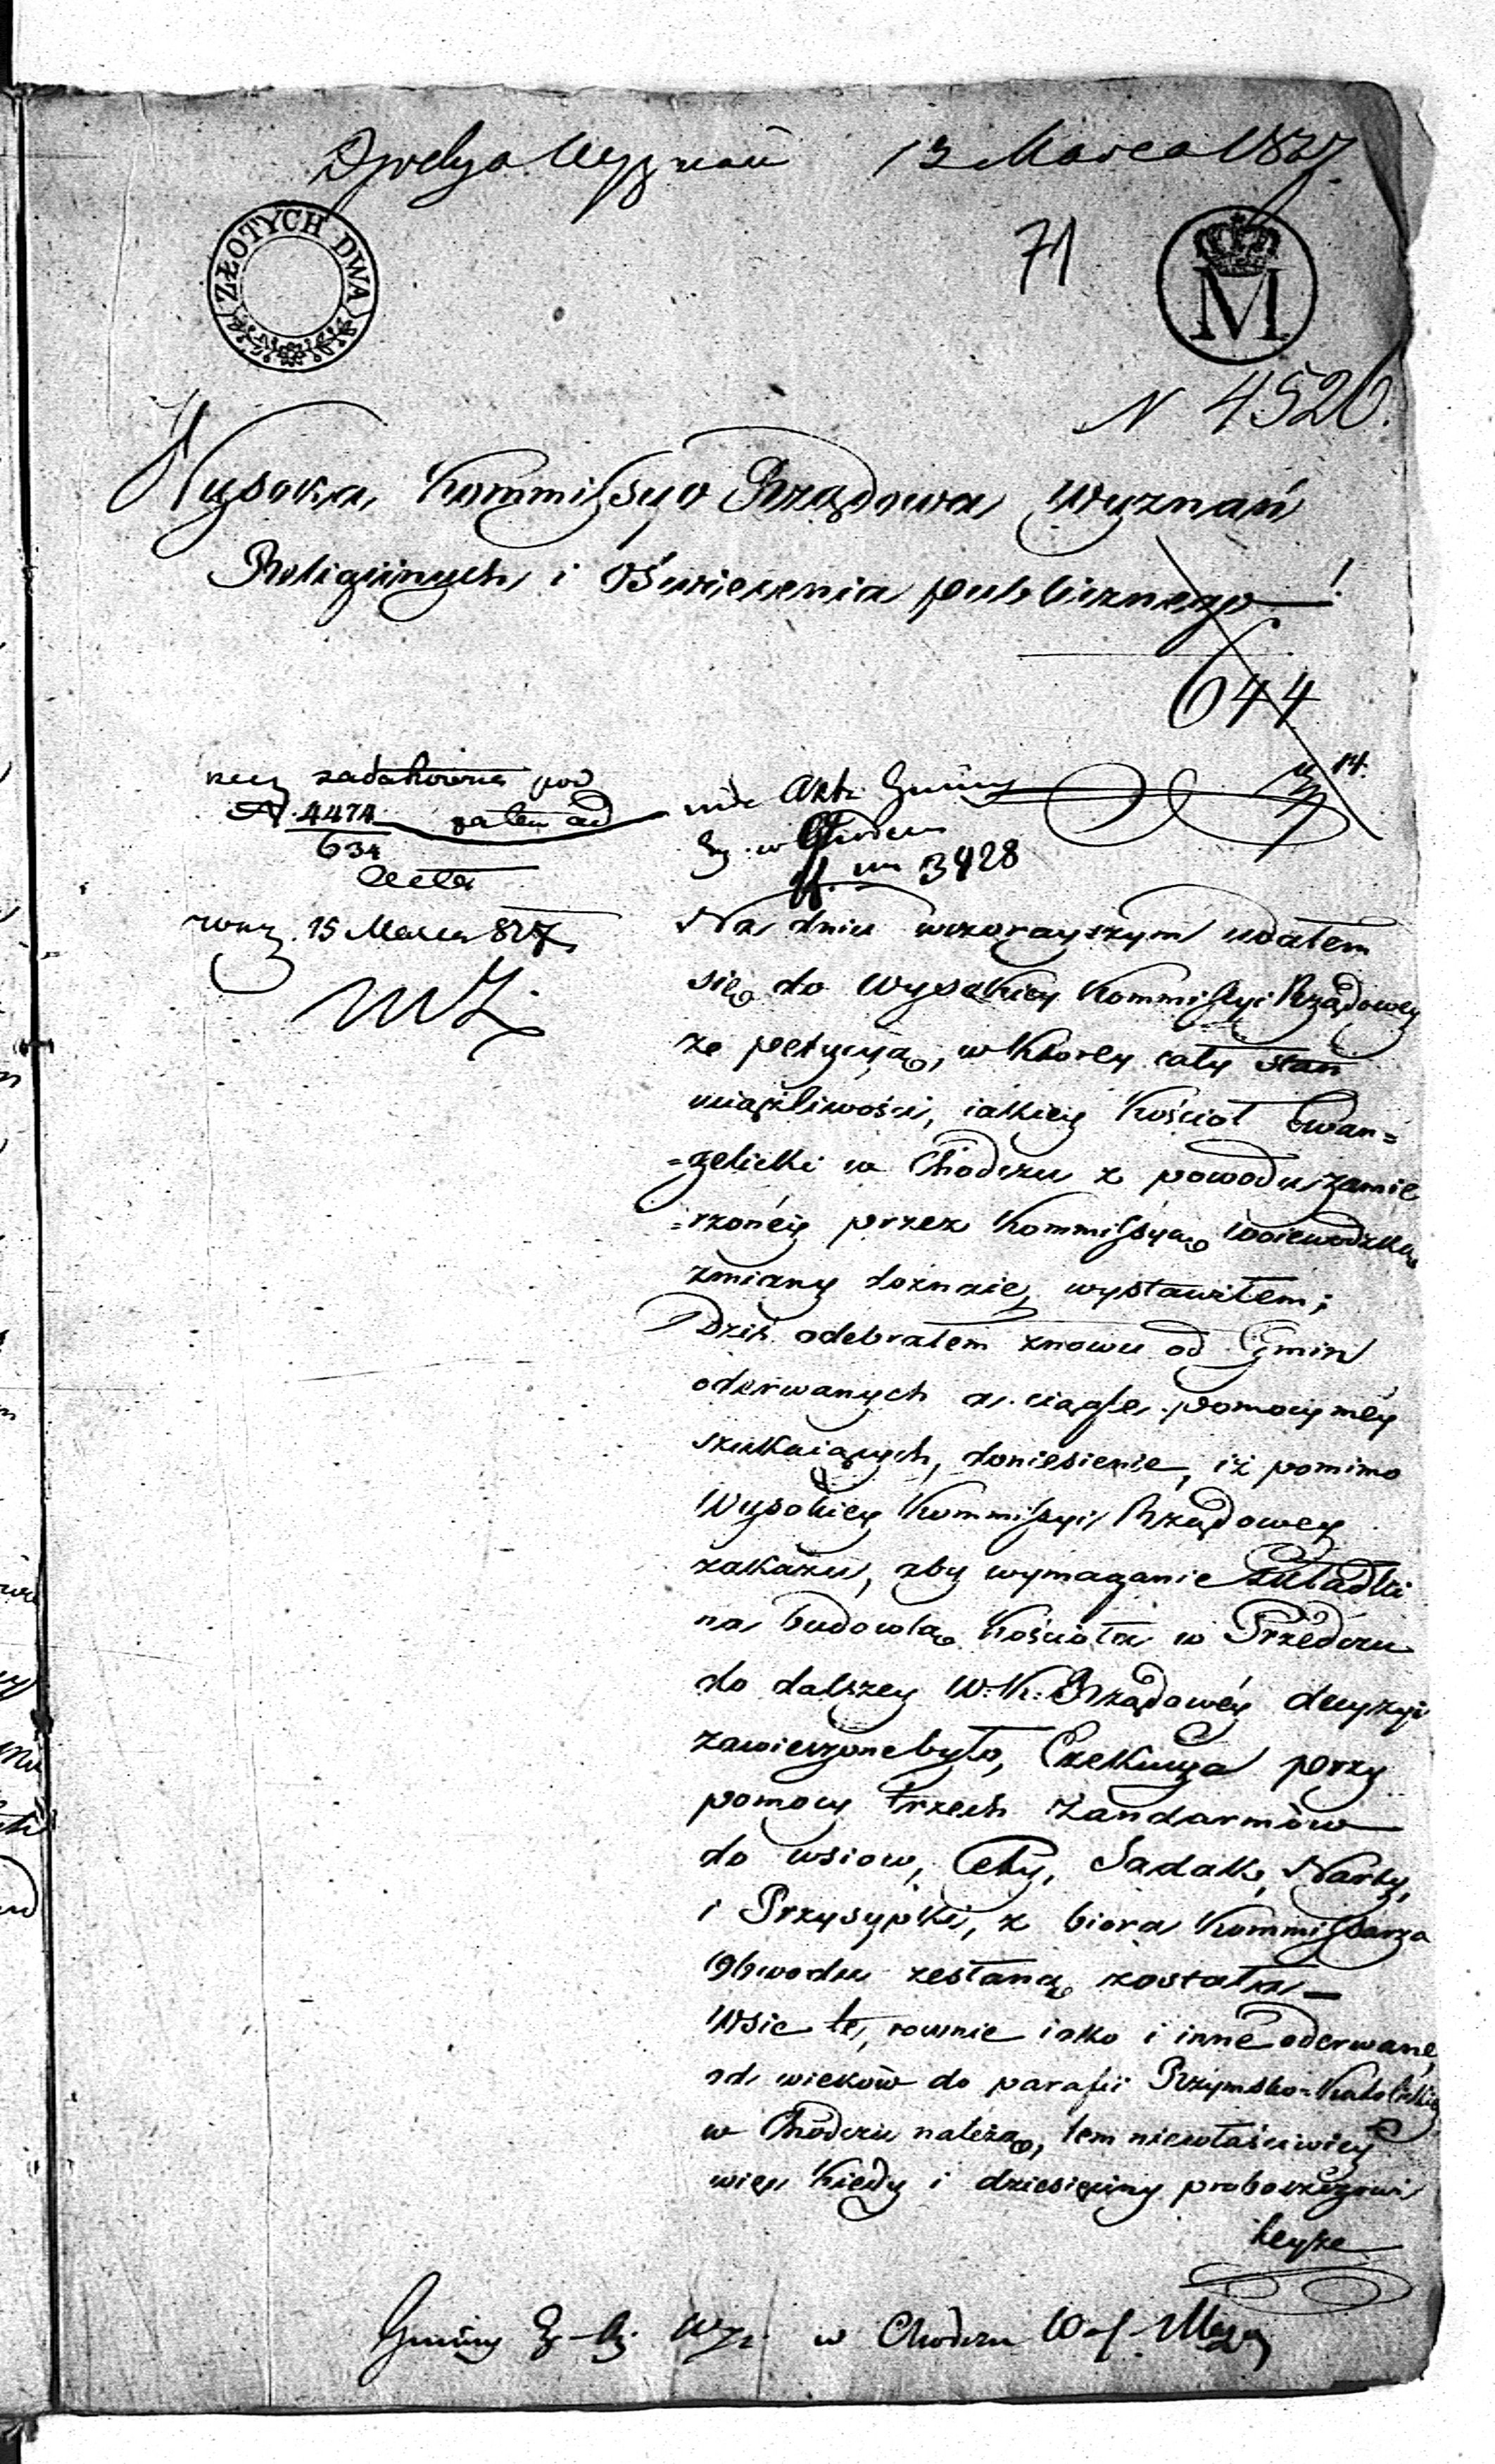 13 Marca 1827
ZŁOTYCH DWA
71
M
N 4520.
Wysoka Kommissyo Rządowa Wyznań
Religiinych i Oświecenia publicznego!
644
14.
zadatkowane pod
N. 4474 zatem ad
634
acta
vide Akta Gminy
Eg. w Chodczu
3428
15 Marca 827
Na dniu wczorayszym udałem
się do Wysokiey Kommissyi Rządowey
ze petycyią, w ktorey cały stan
uciążliwości, iakiey Kościoł Ewan=
=gelicki w Chodczu z powodu zamie
=rzoney przez Kommissyą Woiewodzką
zmiany doznaie, wystawiłem;
Dziś odebrałem znowu od Gmin
oderwanych a ciągle pomocy mey
szukaiących, doniesienie, iż pomimo
Wysokiey Kommissyi Rządowey
zakazu, aby wymaganie składki
na budowlą Kościoła w Przedczu
do dalszey W: K: Rządowéy decyzyi
zawieszone było, Exekucya przy
pomocy trzech Żandarmów
do wsiow, Cety, Sadok, Narty,
i Przysypki, z biora Kommissarza
Obwodu zesłaną została —
Wsie te, rownie iako i inne oderwane,
od wieków do parafii Rzymsko=Katolickiey
w Chodczu należą, tem niewłaściwiey
więc kiedy i dziesięciny proboszczowi
teyże
Gminy w Chodczu